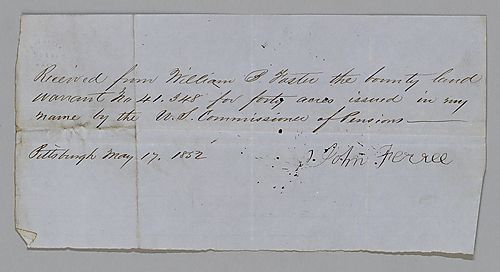 Received from William B. Foster the bounty land
warrant No 41.348 for forty acres issued in my
name by the U.S. Commissioner of Pensions
Pittsburgh May 17. 1852 John Ferree